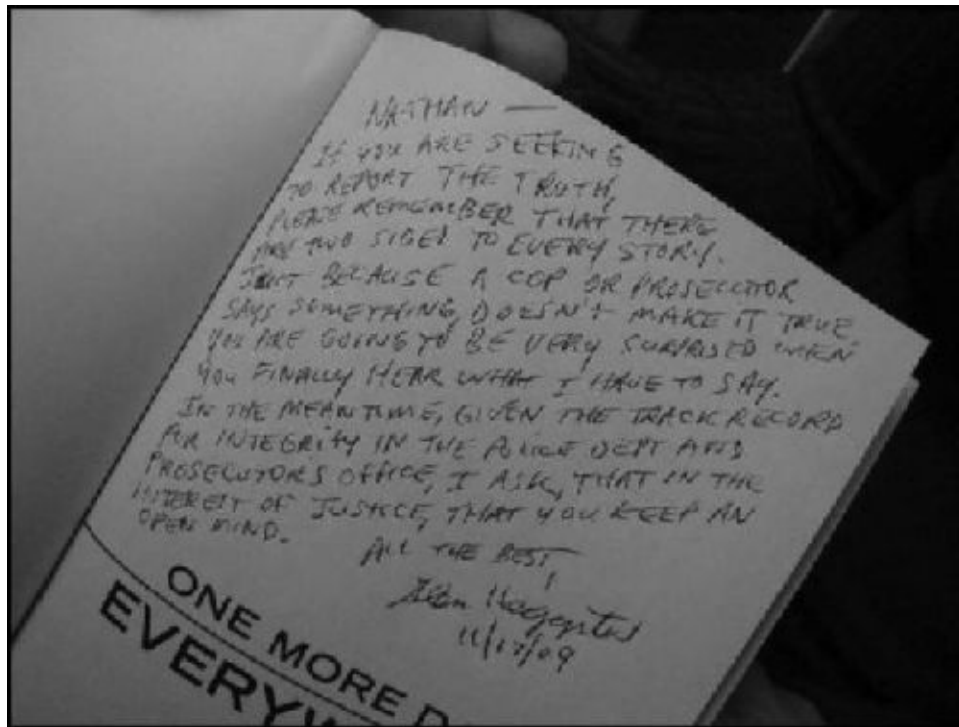 NATHAN —
IF YOU ARE SEEKING
TO REPORT THE TRUTH,
PLEASE REMEMBER THAT THERE
ARE TWO SIDES TO EVERY STORY.
JUST BECAUSE A COP OR PROSECUTOR
SAYS SOMETHING, DOESN'T MAKE IT TRUE
YOU ARE GOING TO BE VERY SURPRISED WHEN
YOU FINALLY HEAR WHAT I HAVE TO SAY.
IN THE MEANTIME, GIVEN THE TRACK RECORD
FOR INTEGRITY IN THE POLICE DEPT AND
PROSECUTORS OFFICE, I ASK, THAT IN THE
INTEREST OF JUSTICE, THAT YOU KEEP AN
OPEN MIND.
ALL THE BEST,
11/17/09
ONE MORE